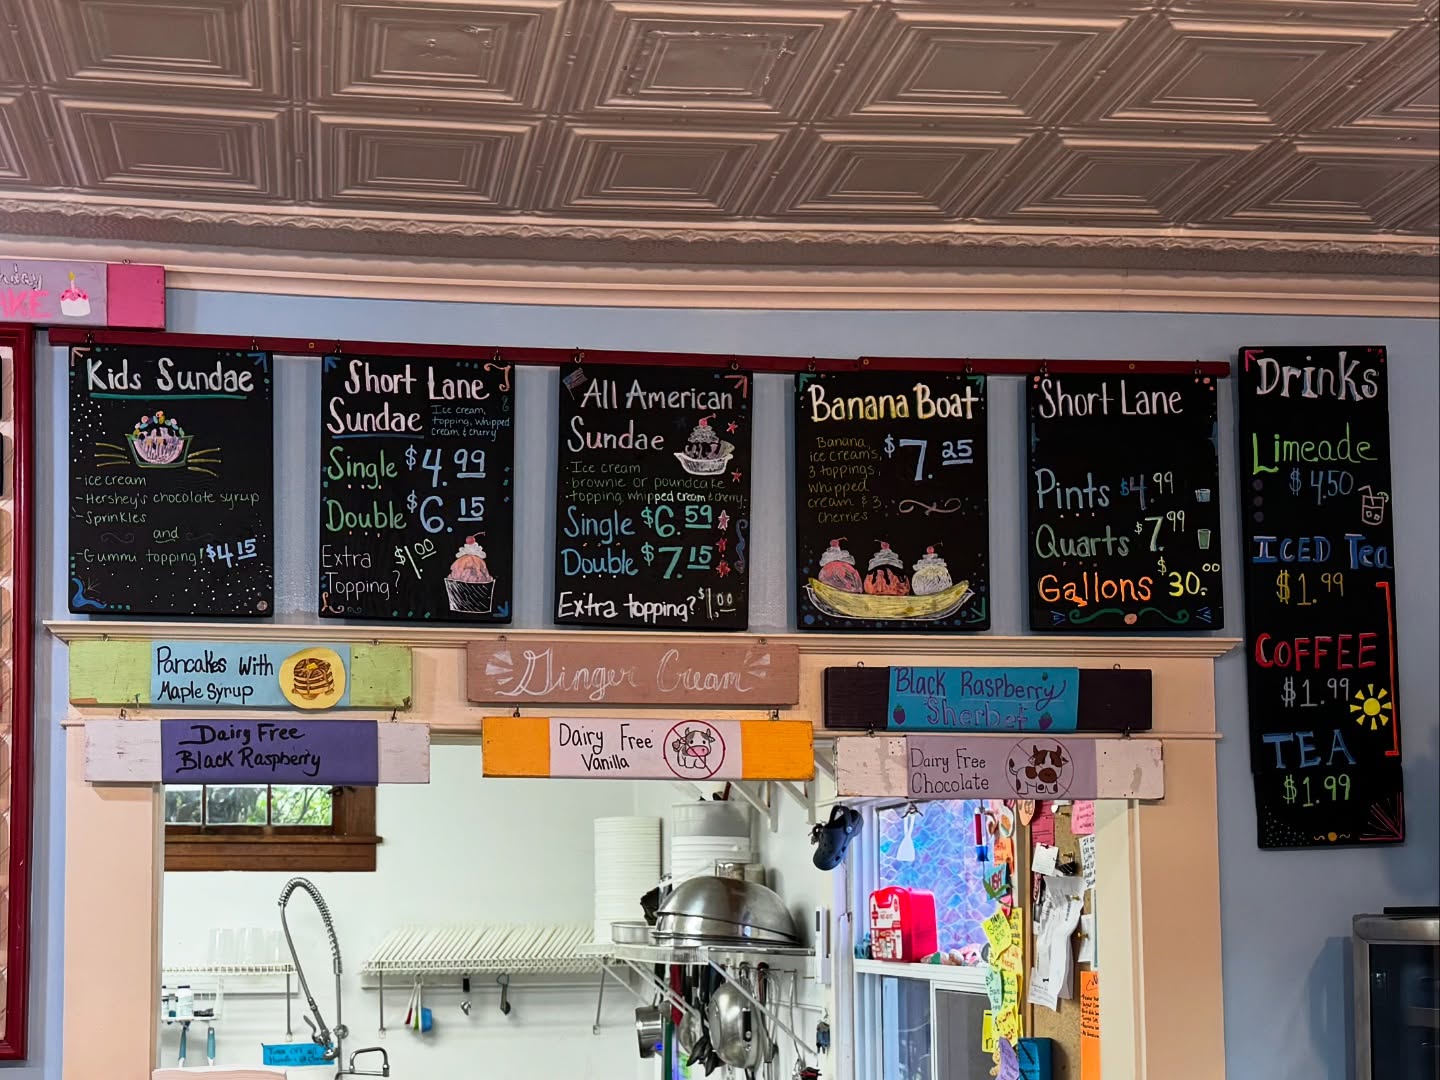 Kids Sundae
-ice cream
-Hershey's chocolate syrup
-Sprinkles
and
-Gummi topping! $4.15
Short Lane
Sundae
Ice cream,
topping, whipped
cream & cherry
Single $4.99
Double $6.15
Extra
Topping? $1.00
All American
Sundae
·Ice cream
·brownie or poundcake
·topping, whipped cream & cherry
Single $6.59
Double $7.15
Extra topping? $1.00
Banana Boat
Banana,
ice creams,
3 toppings,
whipped
cream & 3
cherries
$7.25
Short Lane
Pints $4.99
Quarts $7.99
Gallons $30.00
Drinks
Limeade
$4.50
ICED Tea
$1.99
COFFEE
$1.99
TEA
$1.99
Pancakes With
Maple Syrup
Ginger Cream
Black Raspberry
Sherbet
Dairy Free
Black Raspberry
Dairy Free
Vanilla
Dairy Free
Chocolate